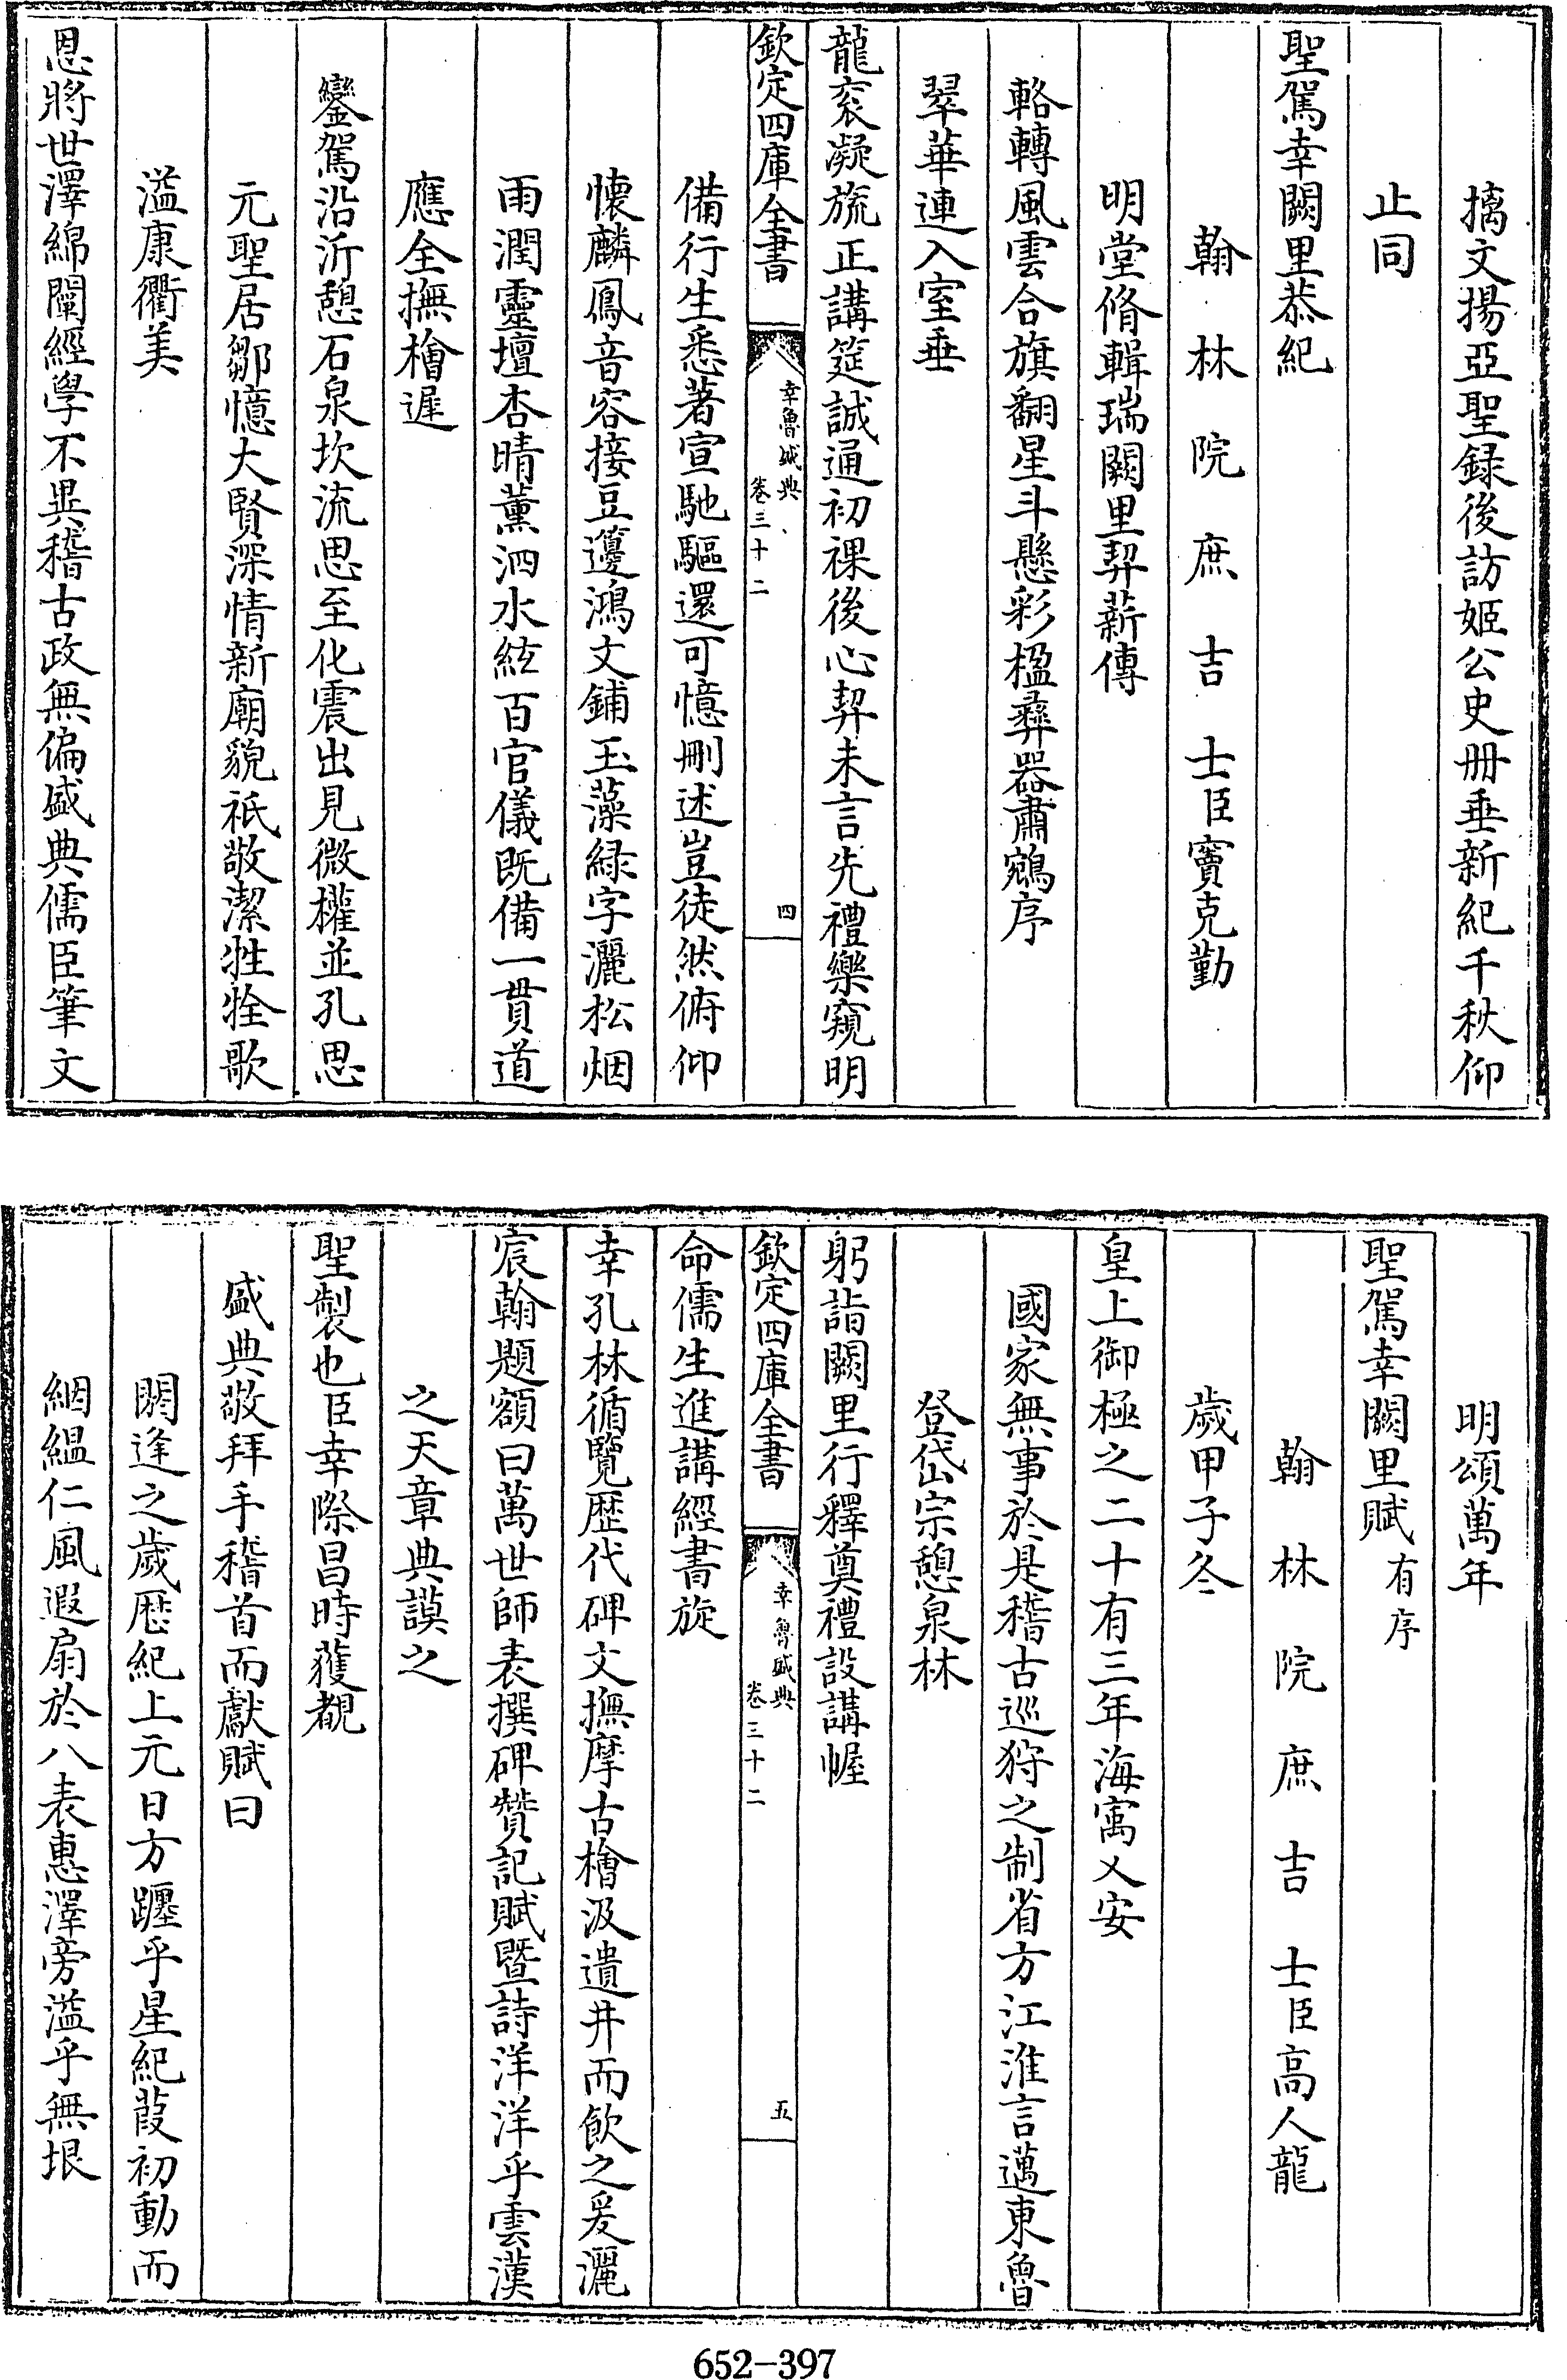 摛文揚亞聖録後訪姬公史冊垂新紀千秋仰
止同
聖駕幸闕里恭紀
翰林院庶吉士臣竇克勤
明堂脩輯瑞闕里契薪傳
輅轉風雲合旗翻星斗懸彩楹彞器肅鵷序
翠華連入室垂
龍衮凝旒正講筵誠通初祼後心契未言先禮樂窺明
欽定四庫全書
幸魯盛典
卷三十二
四
備行生悉著宣馳驅還可憶刪述豈徒然俯仰
懐麟鳳音容接豆籩鴻文鋪玉藻緑字灑松烟
雨潤靈壇杏晴薰泗水絃百官儀既備一貫道
應全撫檜遲
鑾駕沿沂憩石泉坎流思至化震出見微權並孔思
元聖居鄒憶大賢深情新廟貌祇敬潔牲牷歌
溢康衢美
恩將世澤綿闡經學不異稽古政無偏盛典儒臣筆文
明頌萬年
聖駕幸闕里賦有序
翰林院庶吉士臣高人龍
歲甲子冬
皇上御極之二十有三年海㝢乂安
國家無事於是稽古巡狩之制省方江淮言邁東魯
登岱宗憩泉林
躬詣闕里行釋奠禮設講幄
欽定四庫全書
幸魯盛典
卷三十二
五
命儒生進講經書旋
幸孔林循覽歴代碑文撫摩古檜汲遺井而飲之爰灑
宸翰題額曰萬世師表撰碑贊記賦暨詩洋洋乎雲漢
之天章典謨之
聖製也臣幸際昌時獲覩
盛典敬拜手稽首而獻賦曰
閼逢之歲厯紀上元日方躔乎星紀葭初動而
絪緼仁風遐扇於八表惠澤旁溢乎無垠
652-397